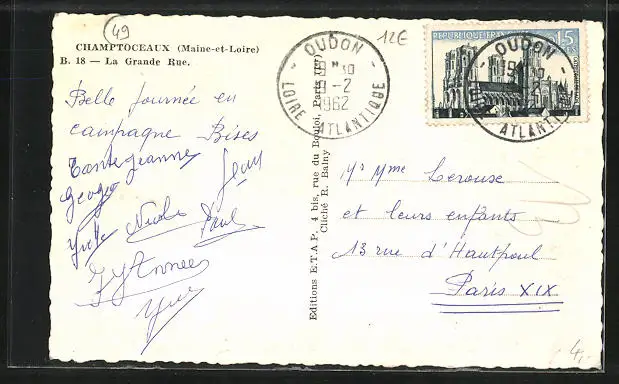 49
CHAMPTOCEAUX (Maine-et-Loire)
B. 18 — La Grande Rue.
Belle journée en
campagne Bises
Tante Jeanne
Jean
Nicole Paul
Yves
Editions E.T.A.P. 4 bis, rue du Bouloi, Paris (1er)
Cliché R. Balny
OUDON
9-2
1962
LOIRE ATLANTIQUE
12E
REPUBLIQUE FRANÇAISE
0,15
OUDON
ATLANTIQUE
Mr Mme Lerouse
et leurs enfants
13 rue d'Hautpoul
Paris XIX
4,